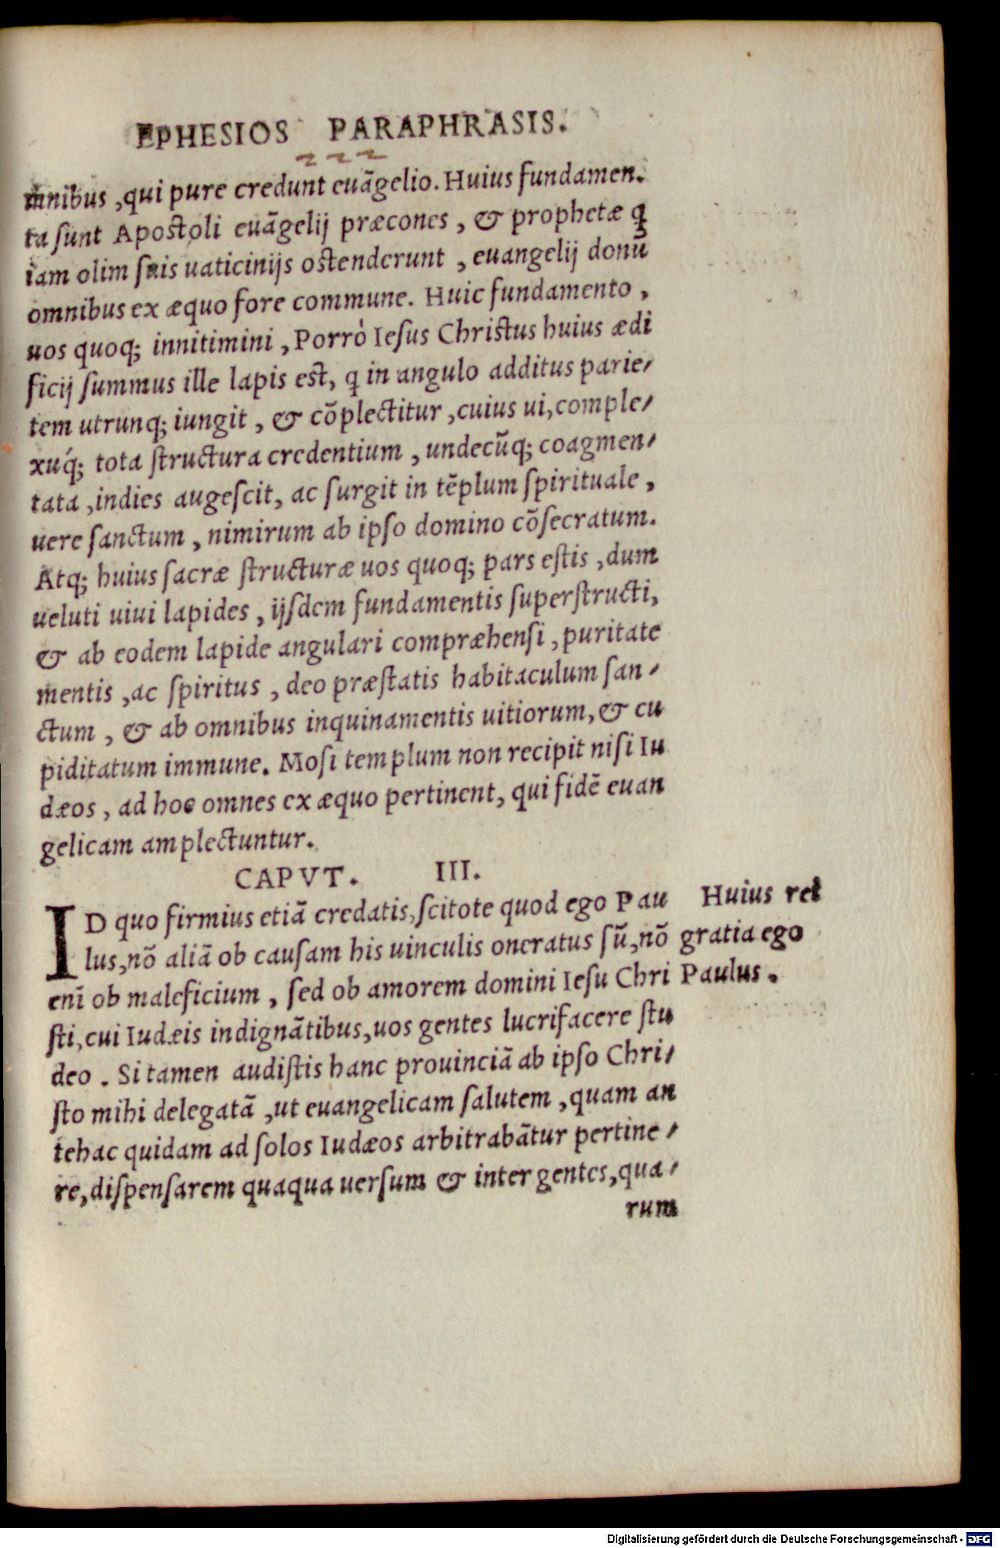 EPHESIOS PARAPHRASIS.
omnibus, qui pure credunt euãgelio. Huius fundamen.
ta sunt Apostoli euãgelij præcones, & prophetæ q̃
iam olim suis uaticinijs ostenderunt, euangelij donũ
omnibus ex æquo fore commune. Huic fundamento,
uos quoq; innitimini, Porrò Iesus Christus huius ædi
ficij summus ille lapis est, q in angulo additus parie/
tem utrunq; iungit, & cõplectitur, cuius ui, comple/
xuq́; tota structura credentium, undecũq; coagmen/
tata, indies augescit, ac surgit in tẽplum spirituale,
uere sanctum, nimirum ab ipso domino cõsecratum.
Atq; huius sacræ structuræ uos quoq; pars estis, dum
ueluti uiui lapides, ijsdem fundamentis superstructi,
& ab eodem lapide angulari compræhensi, puritate
mentis, ac spiritus, deo præstatis habitaculum san/
ctum, & ab omnibus inquinamentis uitiorum, & cu
piditatum immune. Mosi templum non recipit nisi Iu
dæos, ad hoc omnes ex æquo pertinent, qui fidẽ euan
gelicam amplectuntur.
CAPVT. III.
ID quo firmius etiã credatis, scitote quod ego Pau
lus, nõ aliã ob causam his uinculis oneratus sũ, nõ
enĩ ob maleficium, sed ob amorem domini Iesu Chri
sti, cui Iudæis indignãtibus, uos gentes lucrifacere stu
deo. Si tamen audistis hanc prouinciã ab ipso Chri/
sto mihi delegatã, ut euangelicam salutem, quam an
tehac quidam ad solos Iudæos arbitrabãtur pertine/
re, dispensarem quaqua uersum & inter gentes, qua/
rum
Huius rei
gratia ego
Paulus.
Digitalisierung gefördert durch die Deutsche Forschungsgemeinschaft - DFG